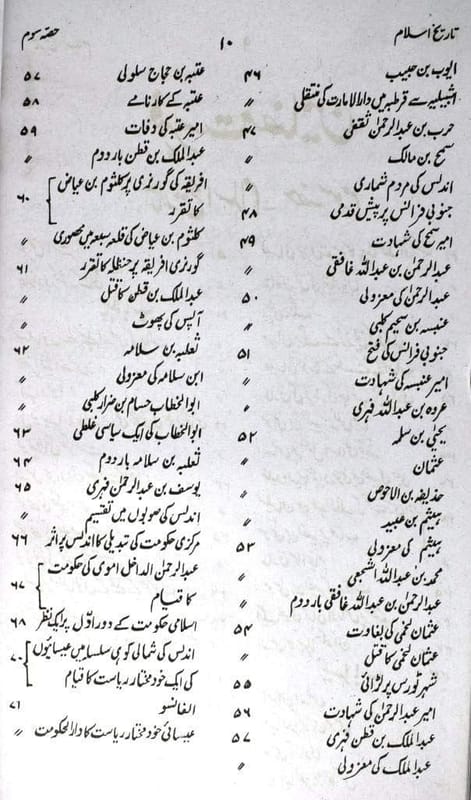 تاریخ اسلام
۱۰
حصہ سوم
ایوب بن حبیب ۴۶
اشبیلیہ سے قرطبہ میں دارالامارت کی منتقلی 〃
حرب بن عبدالرحمٰن ثقفی ۴۷
سمح بن مالک 〃
اندلس کی مردم شماری 〃
جنوبی فرانس پر پیش قدمی ۴۸
امیر سمح کی شہادت ۴۹
عبدالرحمٰن بن عبداللہ غافقی 〃
عبدالرحمٰن کی معزولی ۵۰
عنبسہ بن سحیم کلبی 〃
جنوبی فرانس کی فتح ۵۱
امیر عنبسہ کی شہادت 〃
عروہ بن عبداللہ فہری 〃
یحییٰ بن سلمہ ۵۲
عثمان 〃
حذیفہ بن الاحوص 〃
ہیثم بن عبید 〃
ہیثم کی معزولی ۵۳
محمد بن عبداللہ اشجعی 〃
عبدالرحمٰن بن عبداللہ غافقی بار دوم 〃
عثمان لخمی کی بغاوت ۵۴
عثمان لخمی کا قتل 〃
شہر ٹورس پر لڑائی ۵۵
امیر عبدالرحمٰن کی شہادت ۵۶
عبدالملک بن قطن فہری ۵۷
عبدالملک کی معزولی 〃
عتبہ بن حجاج سلولی ۵۷
عتبہ کے کارنامے ۵۸
امیر عتبہ کی وفات ۵۹
عبدالملک بن قطن بار دوم 〃
افریقہ کی گورنری پر کلثوم بن عیاض
کا تقرر ۶۰
کلثوم بن عیاض کی قلعہ سبعہ میں محصوری 〃
گورنری افریقہ پر حنظلہ کا تقرر ۶۱
عبدالملک بن قطن کا قتل 〃
آپس کی پھوٹ 〃
ثعلبہ بن سلامہ ۶۲
ابن سلامہ کی معزولی 〃
ابوالخطاب حسام بن ضرار کلبی 〃
ابوالخطاب کی ایک سیاسی غلطی ۶۳
ثعلبہ بن سلامہ بار دوم ۶۴
یوسف بن عبدالرحمٰن فہری ۶۵
اندلس کی صوبوں میں تقسیم 〃
مرکزی حکومت کی تبدیلی کا اندلس پر اثر ۶۶
عبدالرحمٰن الداخل اموی کی حکومت
کا قیام ۶۷
اسلامی حکومت کے دور اوّل پر ایک نظر ۶۸
اندلس کی شمالی کوہی سلسلہ میں عیسائیوں
کی ایک خود مختار ریاست کا قیام ۷۰
الفانسو ۷۱
عیسائی خود مختار ریاست کا دارالحکومت 〃